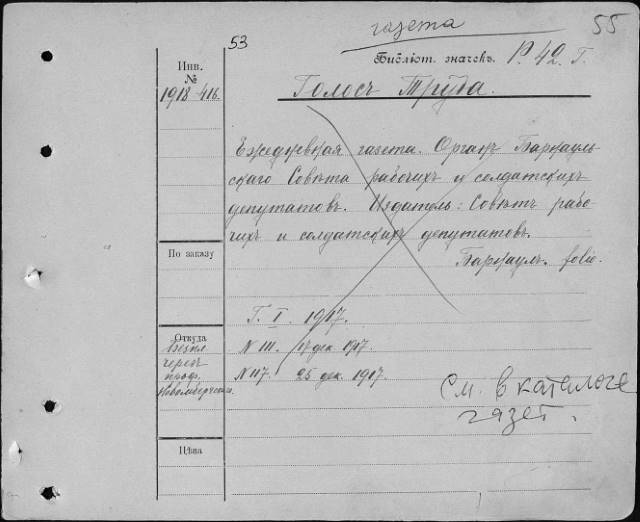 газета
55
53
Библіот. значекъ Р. 42. Г.
Инв.
№
1918-416.
Голосъ Труда.
Ежедневная газета. Органъ Барнауль-
скаго Совѣта рабочихъ и солдатскихъ
депутатовъ. Издатель: Совѣтъ рабо-
чихъ и солдатскихъ депутатовъ.
Барнаулъ. folio.
По заказу
Г. I. 1917.
Откуда
через
проф.
N 111. 17 дек. 1917.
N 117. 25 дек. 1917.
См. в каталоге
газет.
Цѣна